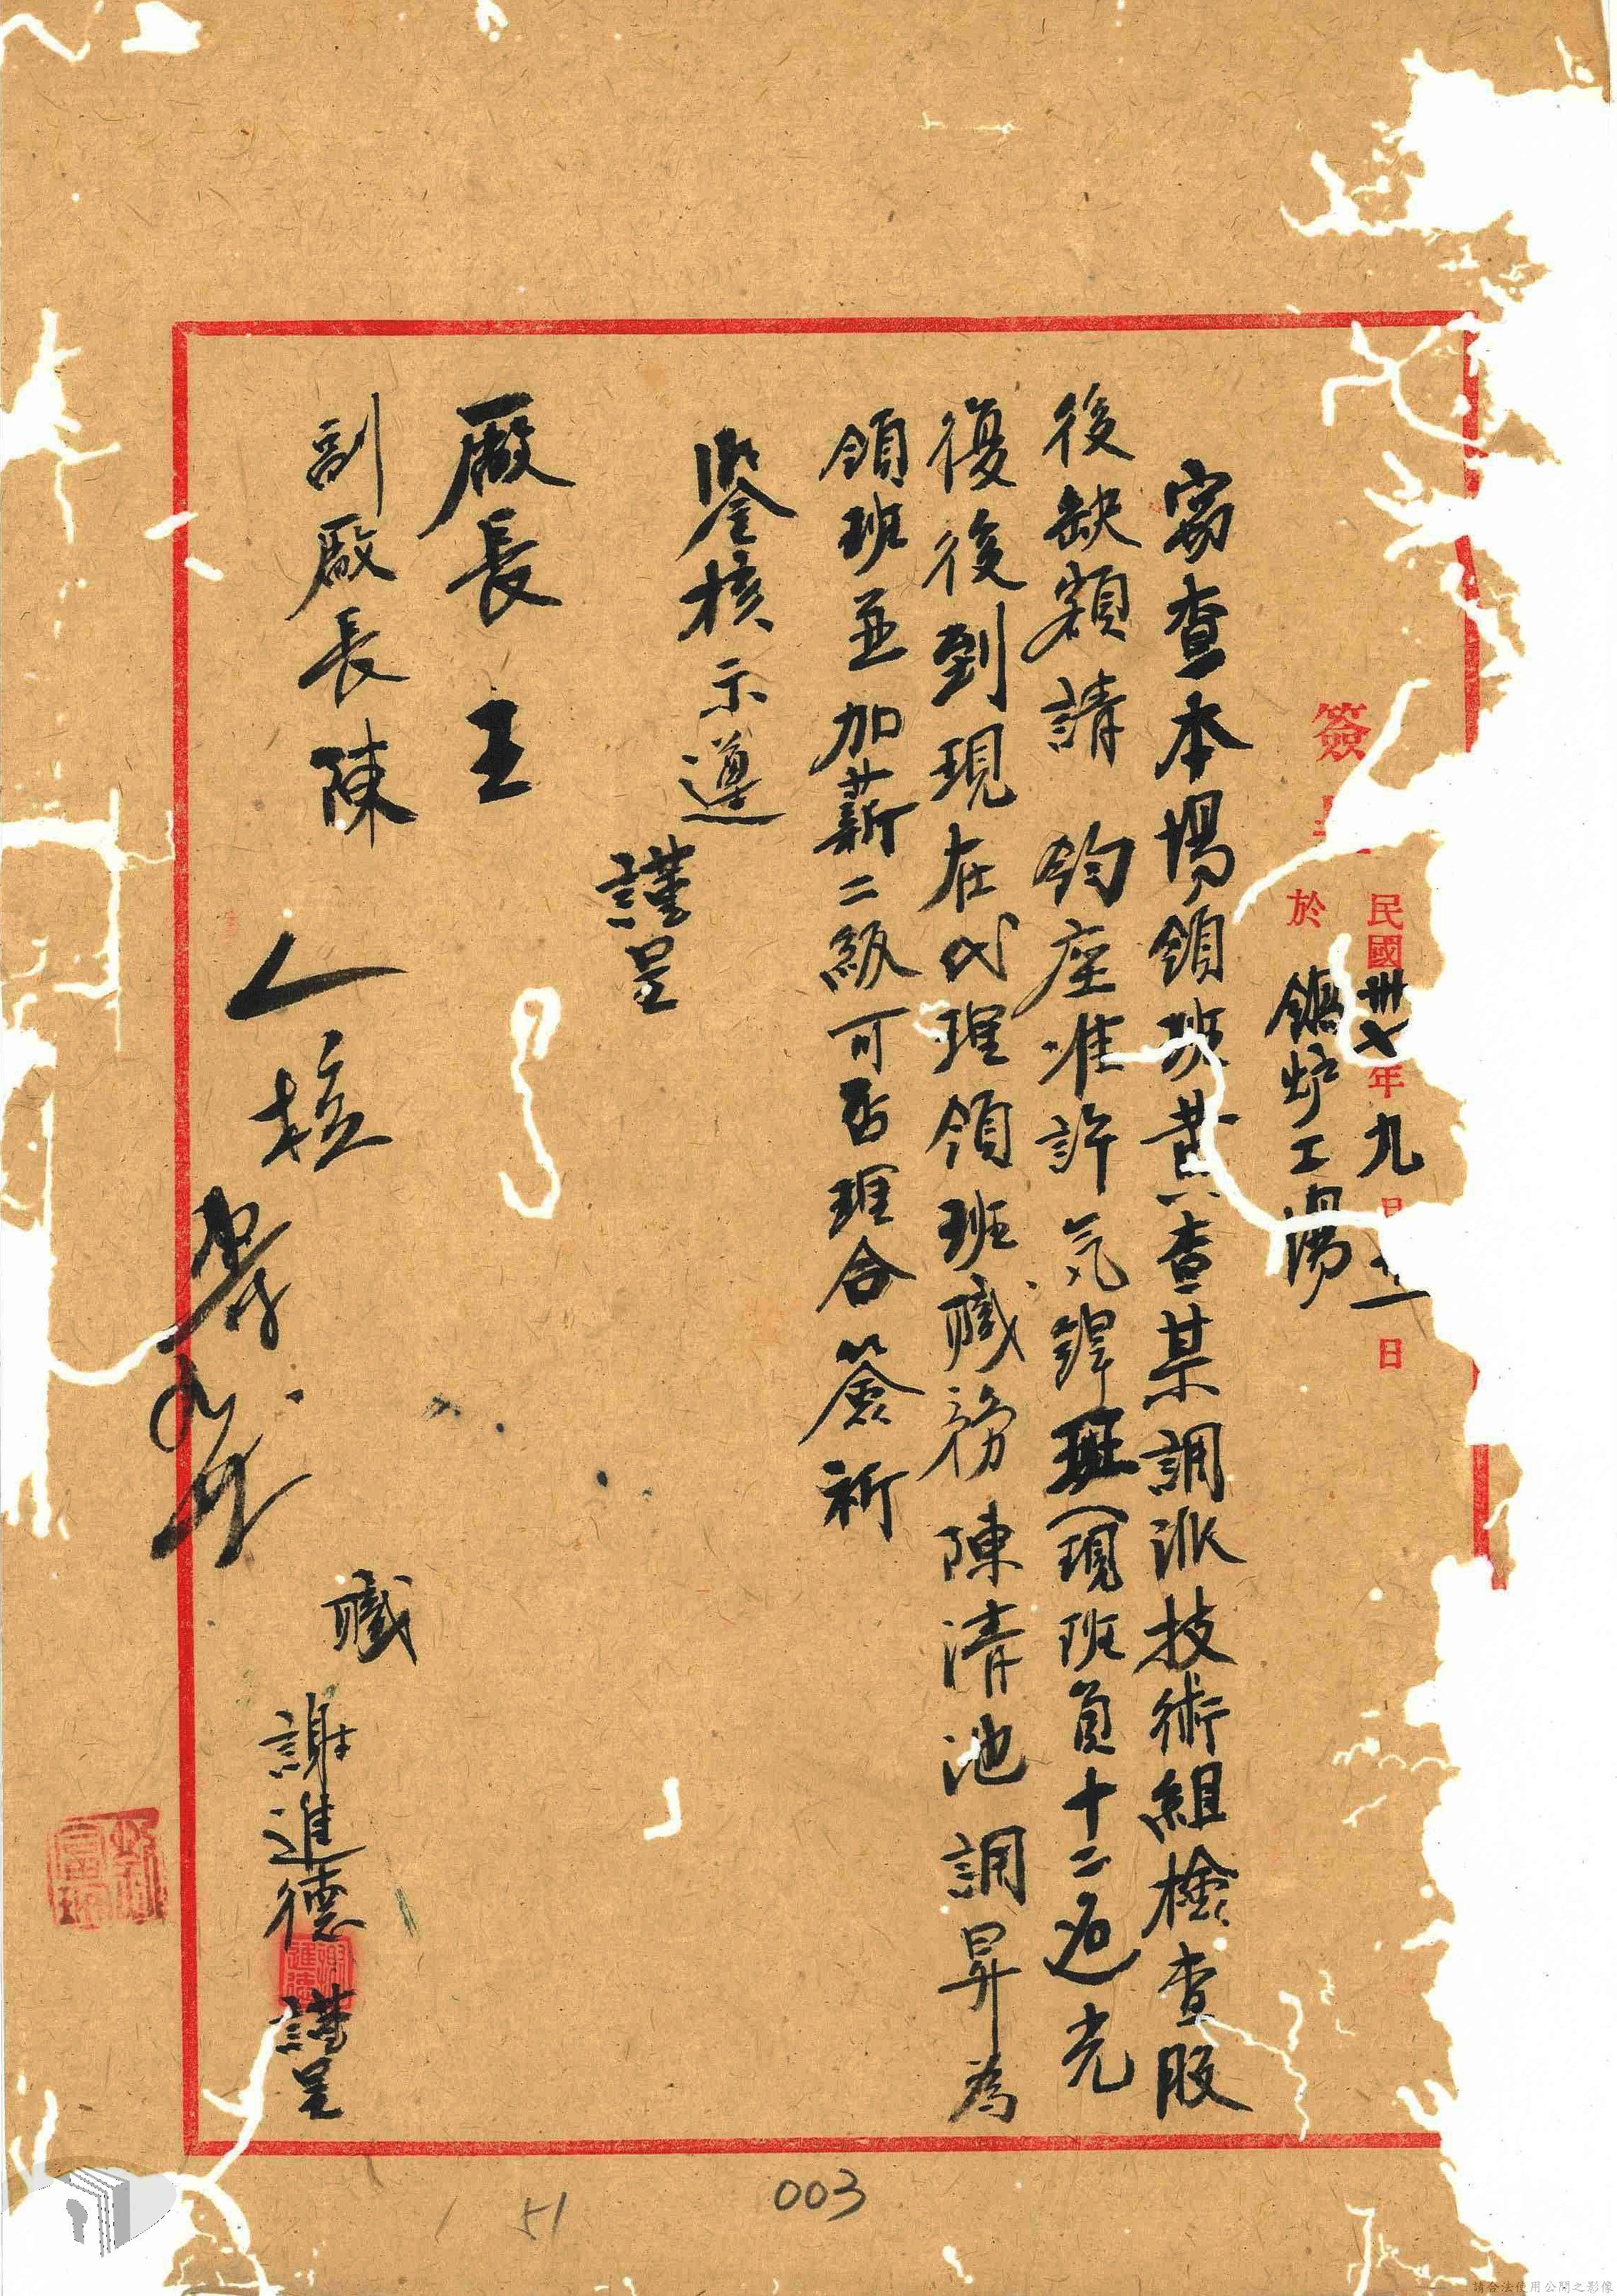 簽
民國卅七年九月 日
於 鍋炉工場
竊查本場領班黃查某調派技術組檢查股
後缺額請 鈞座准許気銲班(現班員十二名)光
復後到現在代理領班職務陳清池調昇為
領班並加薪二級可否理合簽祈
鑒核示遵
謹呈
廠長 王
副廠長陳
職 謝進德 謹呈
003
51
請合法使用公開之影像